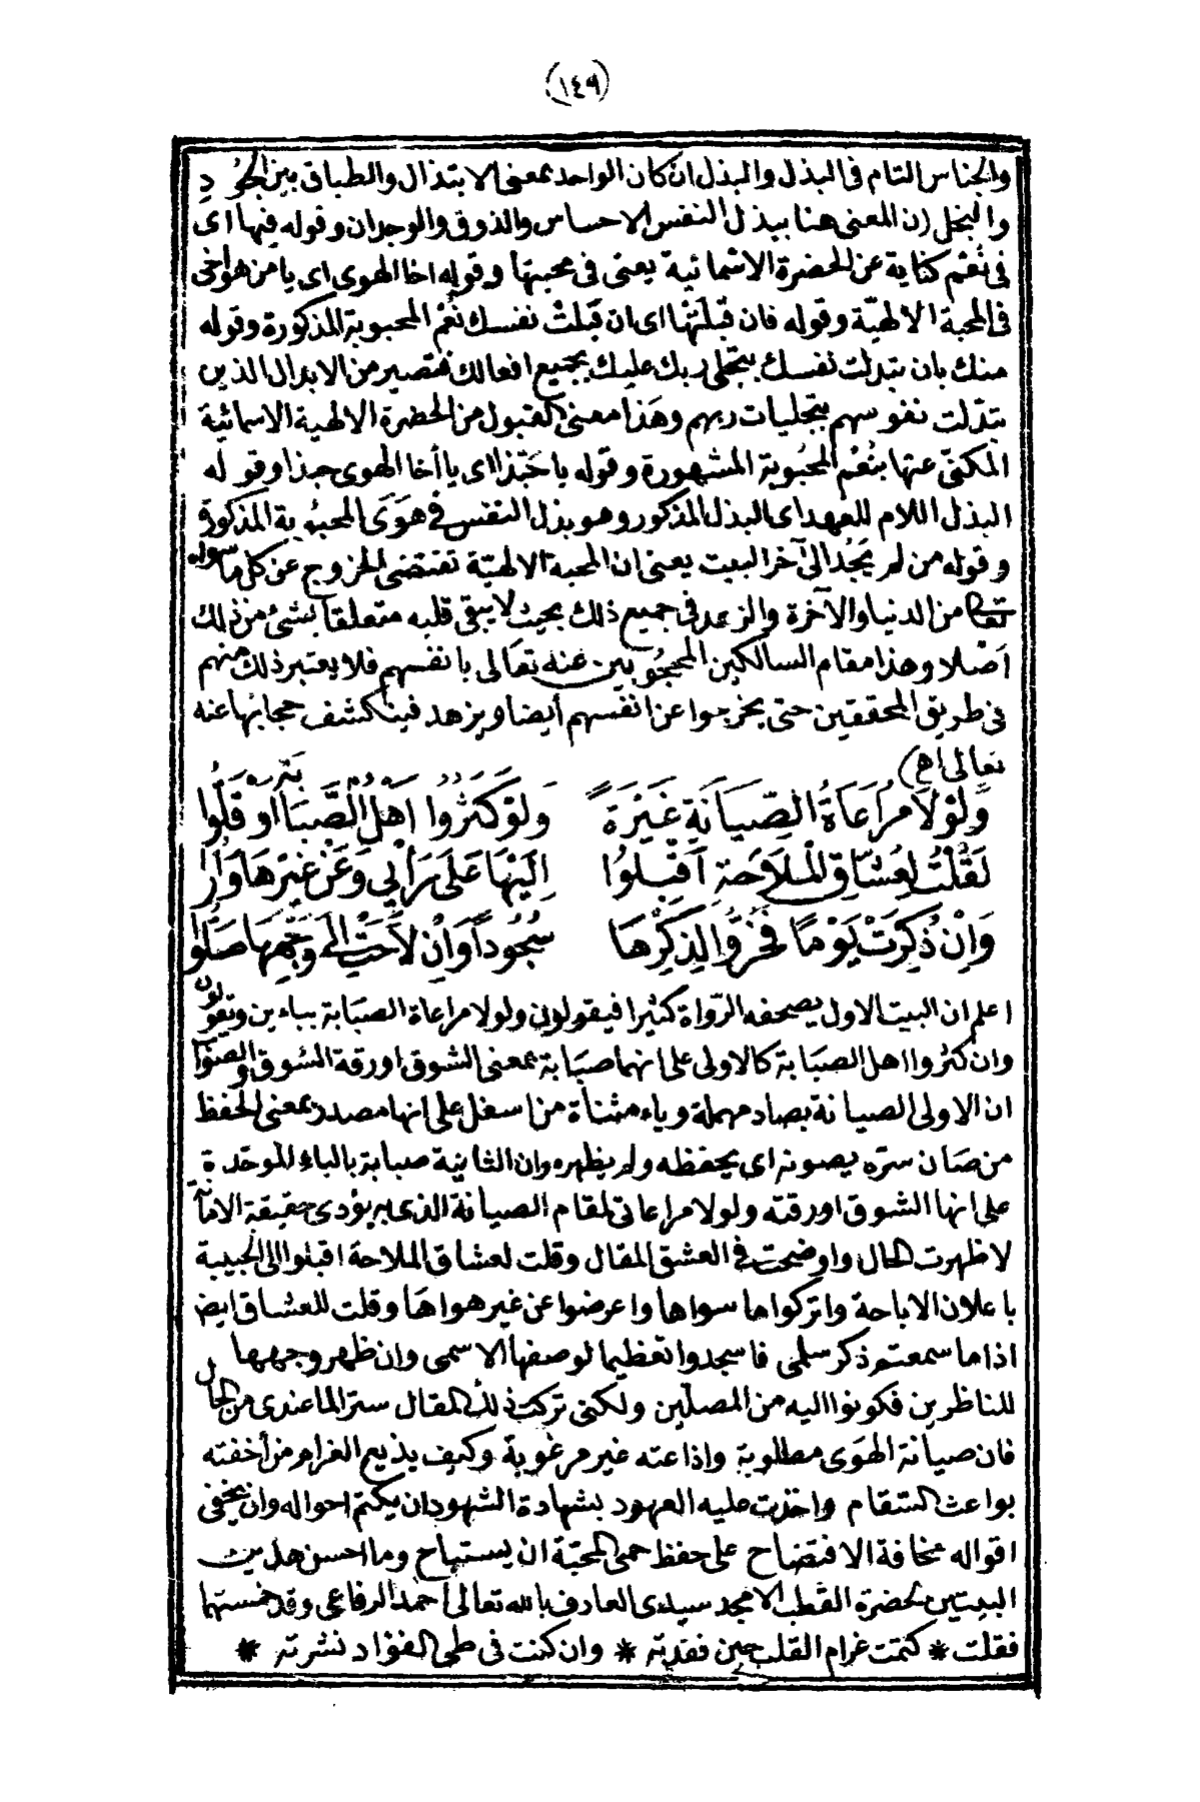 (١٤٩)
والجناس التام في البذل والبذل ان كان الواحد بمعنى الابتذال والطباق بين الجود
والبخل (ن المعنى هنا ببذل النفس الاحساس والذوق والوجدان وقوله فيها اى
في نُعْم كناية عن الحضرة الاسمائية يعنى في محبتها وقوله اخا الهوى اى يا من هو اخي
في المحبة الالهيّة وقوله فان قبلَتْها اى ان قَبِلتْ نفسك نُعْم المحبوبة المذكورة وقوله
منك بان تبدلت نفسك بتجلى ربك عليك بجميع افعالك فتصير من الابدال الذين
تبدّلت نفوسهم بتجليات ربهم وهَذا معنى القبول من الحضرة الالهية الاسمائية
المكنىّ عنها بنُعْم المحبُوبة المشهورة وقوله يا حَبّذا اى يا أخا الهوى حبذا وقوله
البذل اللام للعهد اى البذل المذكور وهو بذل النفس في هَوَى المحبُوبة المذكورة
وقوله من لم يَجُد الى آخر البيت يعنى ان المحبة الالهيّة تقتضى الخروج عن كل ما سواه
تعالى من الدنيا والآخرة والزهد في جميع ذلك بحيث لا يبقى قلبه متعلقا بشئ من ذلك
اَصْلا وهذا مقام السالكين المحجُوبين عنه تعَالى بانفسهم فلا يعتبر ذلك منهم
في طريق المحققين حتى يخرجوا عن انفسهم أيضا ويزهد فينكشف حجابها عنه
تعالى اهـ)
وَلَوْلاَ مرَاعَاةُ الصِّيَانَةِ غَيْرَةً وَلَوْ كَثُرُوا اَهْلُ الصَّبَابَةِ اَوْ قَلُّوا
لَقُلْتُ لِعُشّاقِ الْمَلَاحَةِ اَقْبِلُوا اِلَيْهَا عَلَى رَأْيِي وَعَنْ غَيْرِهَا وَلُّوا
وَاِنْ ذُكِرَتْ يَوْمًا فَخُرُّوا لِذِكْرِهَا سُجُوداً وَاِنْ لاَحَتْ اِلَى وَجْهِهَا صَلُّوا
اعلم ان البيت الاول يصحفه الرّواة كثيرا فيقولون ولولا مراعاة الصبَابة بباءين ويقولون
وان كثروا اهل الصبَابة كالاولى على انها صبَابة بمعنى الشوق او رقة الشوق والصوَاب
ان الاولى الصيانة بصاد مهملة وياء مثناة من اسفل على انها مصدر بمعنى الحفظ
من صَان سرّه يصونه اى يحفظه ولم يظهره وان الثانية صبابة بالباء الموحّدة
على انها الشوق او رقته ولولا مراعاتى لمقام الصيانة الذى به يؤدى حقيقة الامانة
لاظهرت الحال واوضحت في العشق المقال وقلت لعشاق الملاحة اقبلوا الى الحبيبة
باعلان الاباحة واتركوا ما سواها واعرضوا عن غير هواهَا وقلت للعشاق ايضا
اذا ما سمعتم ذكر سلمى فاسجدوا تعظيما لوصفها الاسمى وان ظهر وجهها
للناظرين فكونوا اليه من المصلّين ولكنى تركت ذلك المقال سترا لما عندى من الحال
فان صيانة الهَوَى مطلوبة واذاعته غير مرغوبة وكيف يذيع الغرام من أخفته
بواعث السقام واخذت عليه العهود بشهادة الشهود ان يكتم احواله وان يخفى
اقواله مخافة الافتضاح على حفظ حمى المحبّة ان يستباح وما احسن هذين
البيتين لحضرة القطب الامجد سيدى العارف بالله تعالى أحمد الرفاعى وقد خمستهما
فقلت * كتمت غرام القلب حين فقدته * وان كنت في طى الفؤاد نشرته *